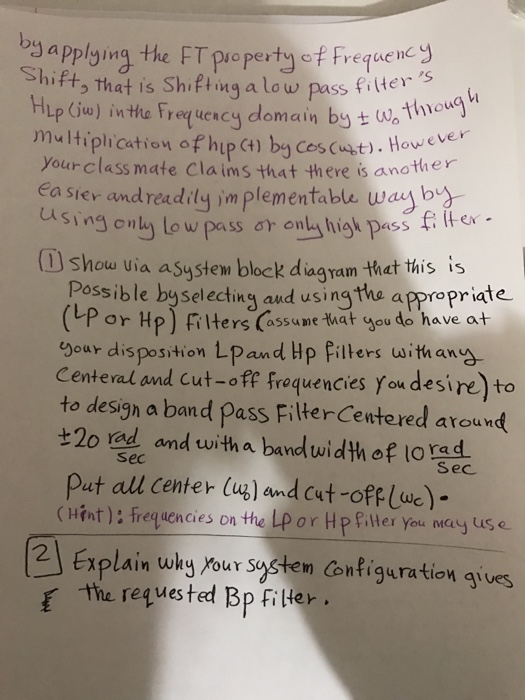 by applying the FT property of Frequency
Shift, that is Shifting a low pass filter's
HLp (jω) in the Frequency domain by ± ωo through
multiplication of hlp (t) by cos (ωot). However
your classmate Claims that there is another
easier and readily implementable way by
using only low pass or only high pass filter.
① Show via a system block diagram that this is
Possible by selecting and using the appropriate
(LP or Hp) Filters (assume that you do have at
your disposition LP and Hp filters with any
Centeral and Cut-off frequencies You desire) to
to design a band Pass Filter Centered around
±20 rad/sec and with a bandwidth of 10 rad/Sec
Put all center (ωo) and cut-off (ωc).
(Hint): frequencies on the LP or Hp filter you may use
2 Explain why Your system Configuration gives
the requested Bp Filter.